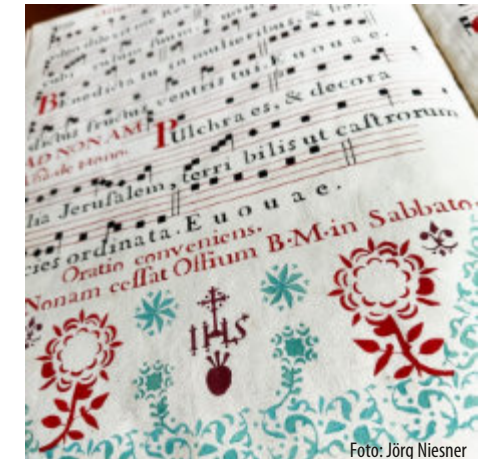 Benedicta tu in mulieribus, &
dictus fructus ventris tui. E u o u a e.
AD NONAM Pulchra es, & decora
lia Jeruſalem, terri bilis ut caſtrorum
cies ordinata. E u o u a e.
Oratio conveniens.
Nonam ceſſat Offium B·M·in Sabbato.
IHS
Foto: Jörg Niesner